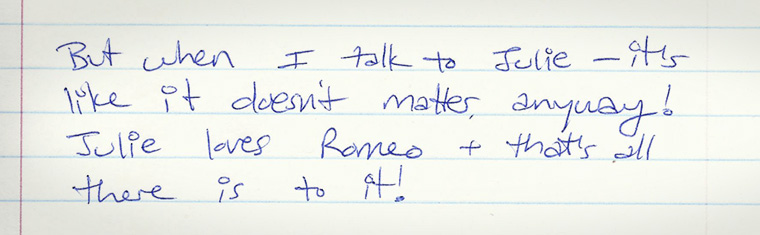 But when I talk to Julie – it's
like it doesn't matter, anyway!
Julie loves Romeo + that's all
there is to it!